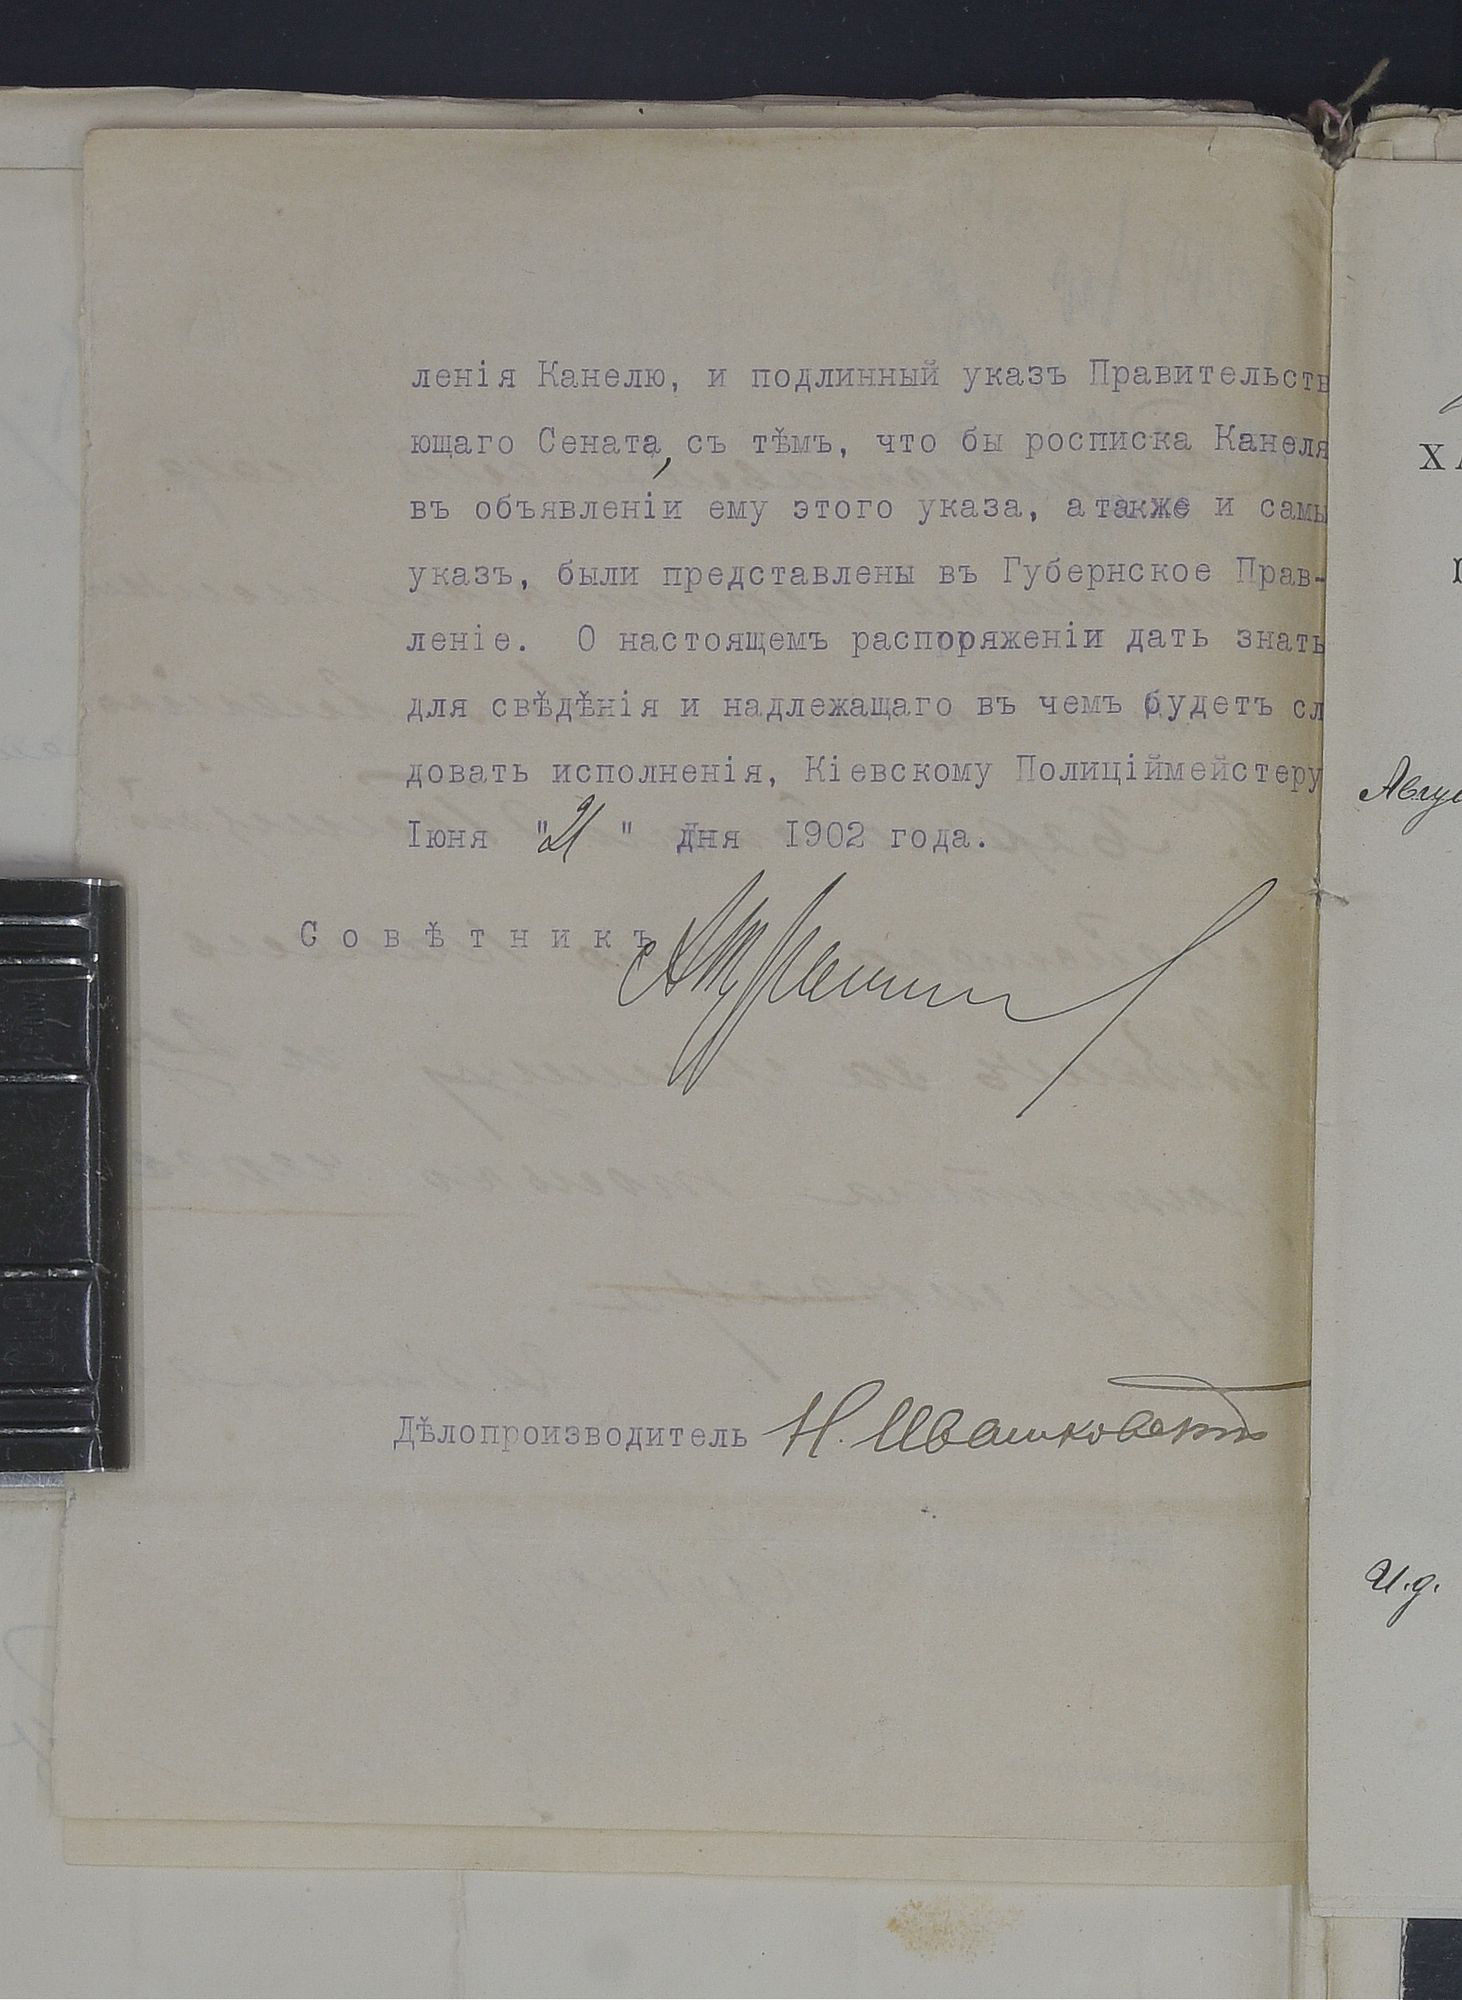 ленія Канелю, и подлинный указъ Правительств
ющаго Сената, съ тѣмъ, что бы росписка Канеля
въ объявленіи ему этого указа, а также и самы
указъ, были представлены въ Губернское Прав-
леніе. О настоящемъ распоряженіи дать знать
для свѣдѣнія и надлежащаго въ чемъ будетъ сл
довать исполненія, Кіевскому Полиціймейстеру
Іюня "21" дня 1902 года.
Совѣтникъ
Дѣлопроизводитель Н. Ивашковскій
И.д.